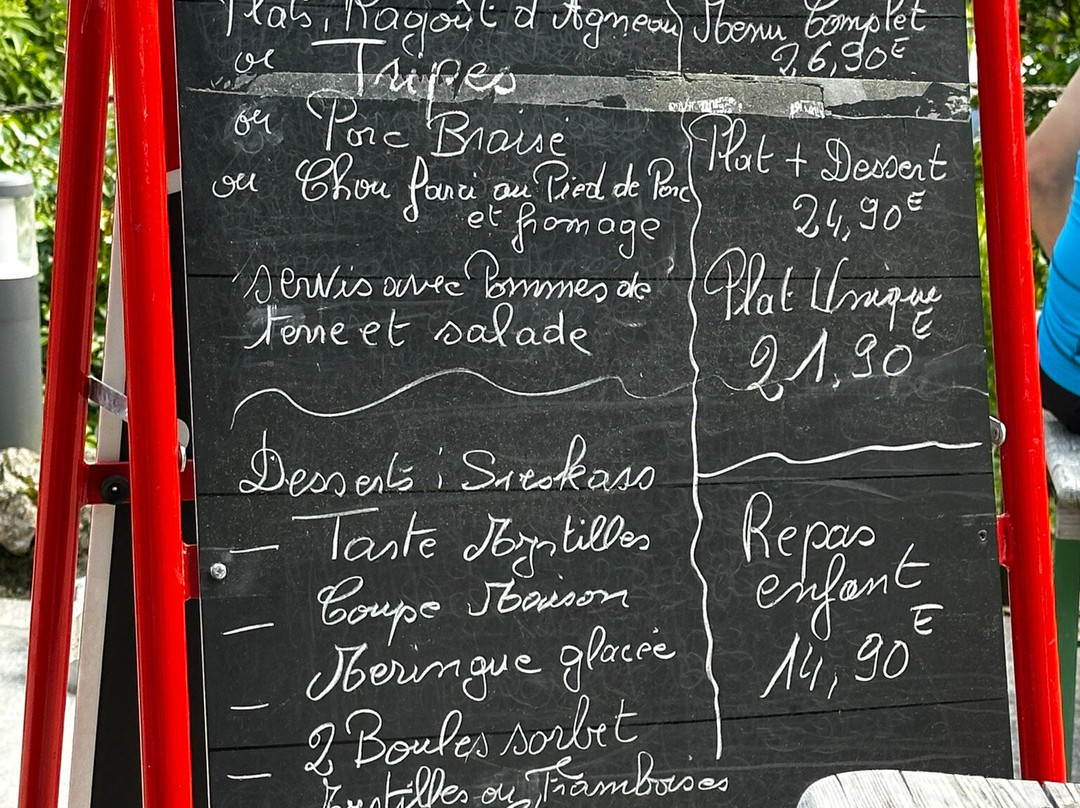 Plats, Ragoût d'Agneau
ou Tripes
ou Porc Braisé
ou Chou farci au Pied de Porc
et fromage
servis avec Pommes de
terre et salade
Desserts : Sieskass
Tarte Myrtilles
Coupe Maison
Meringue glacée
2 Boules sorbet
Myrtilles ou Framboises
Menu Complet
26,90€
Plat + Dessert
24,90€
Plat Unique
21,90€
Repas
enfant
14,90€